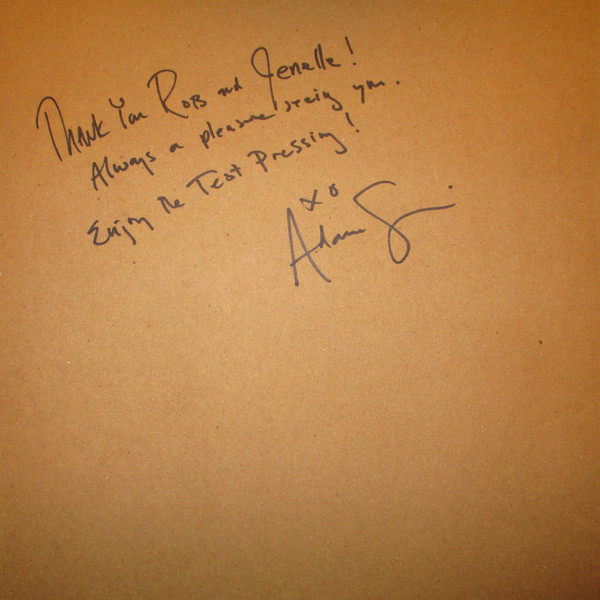 Thank You Rob and Jenelle!
Always a pleasure seeing you.
Enjoy the Test Pressing!
xo
Adam